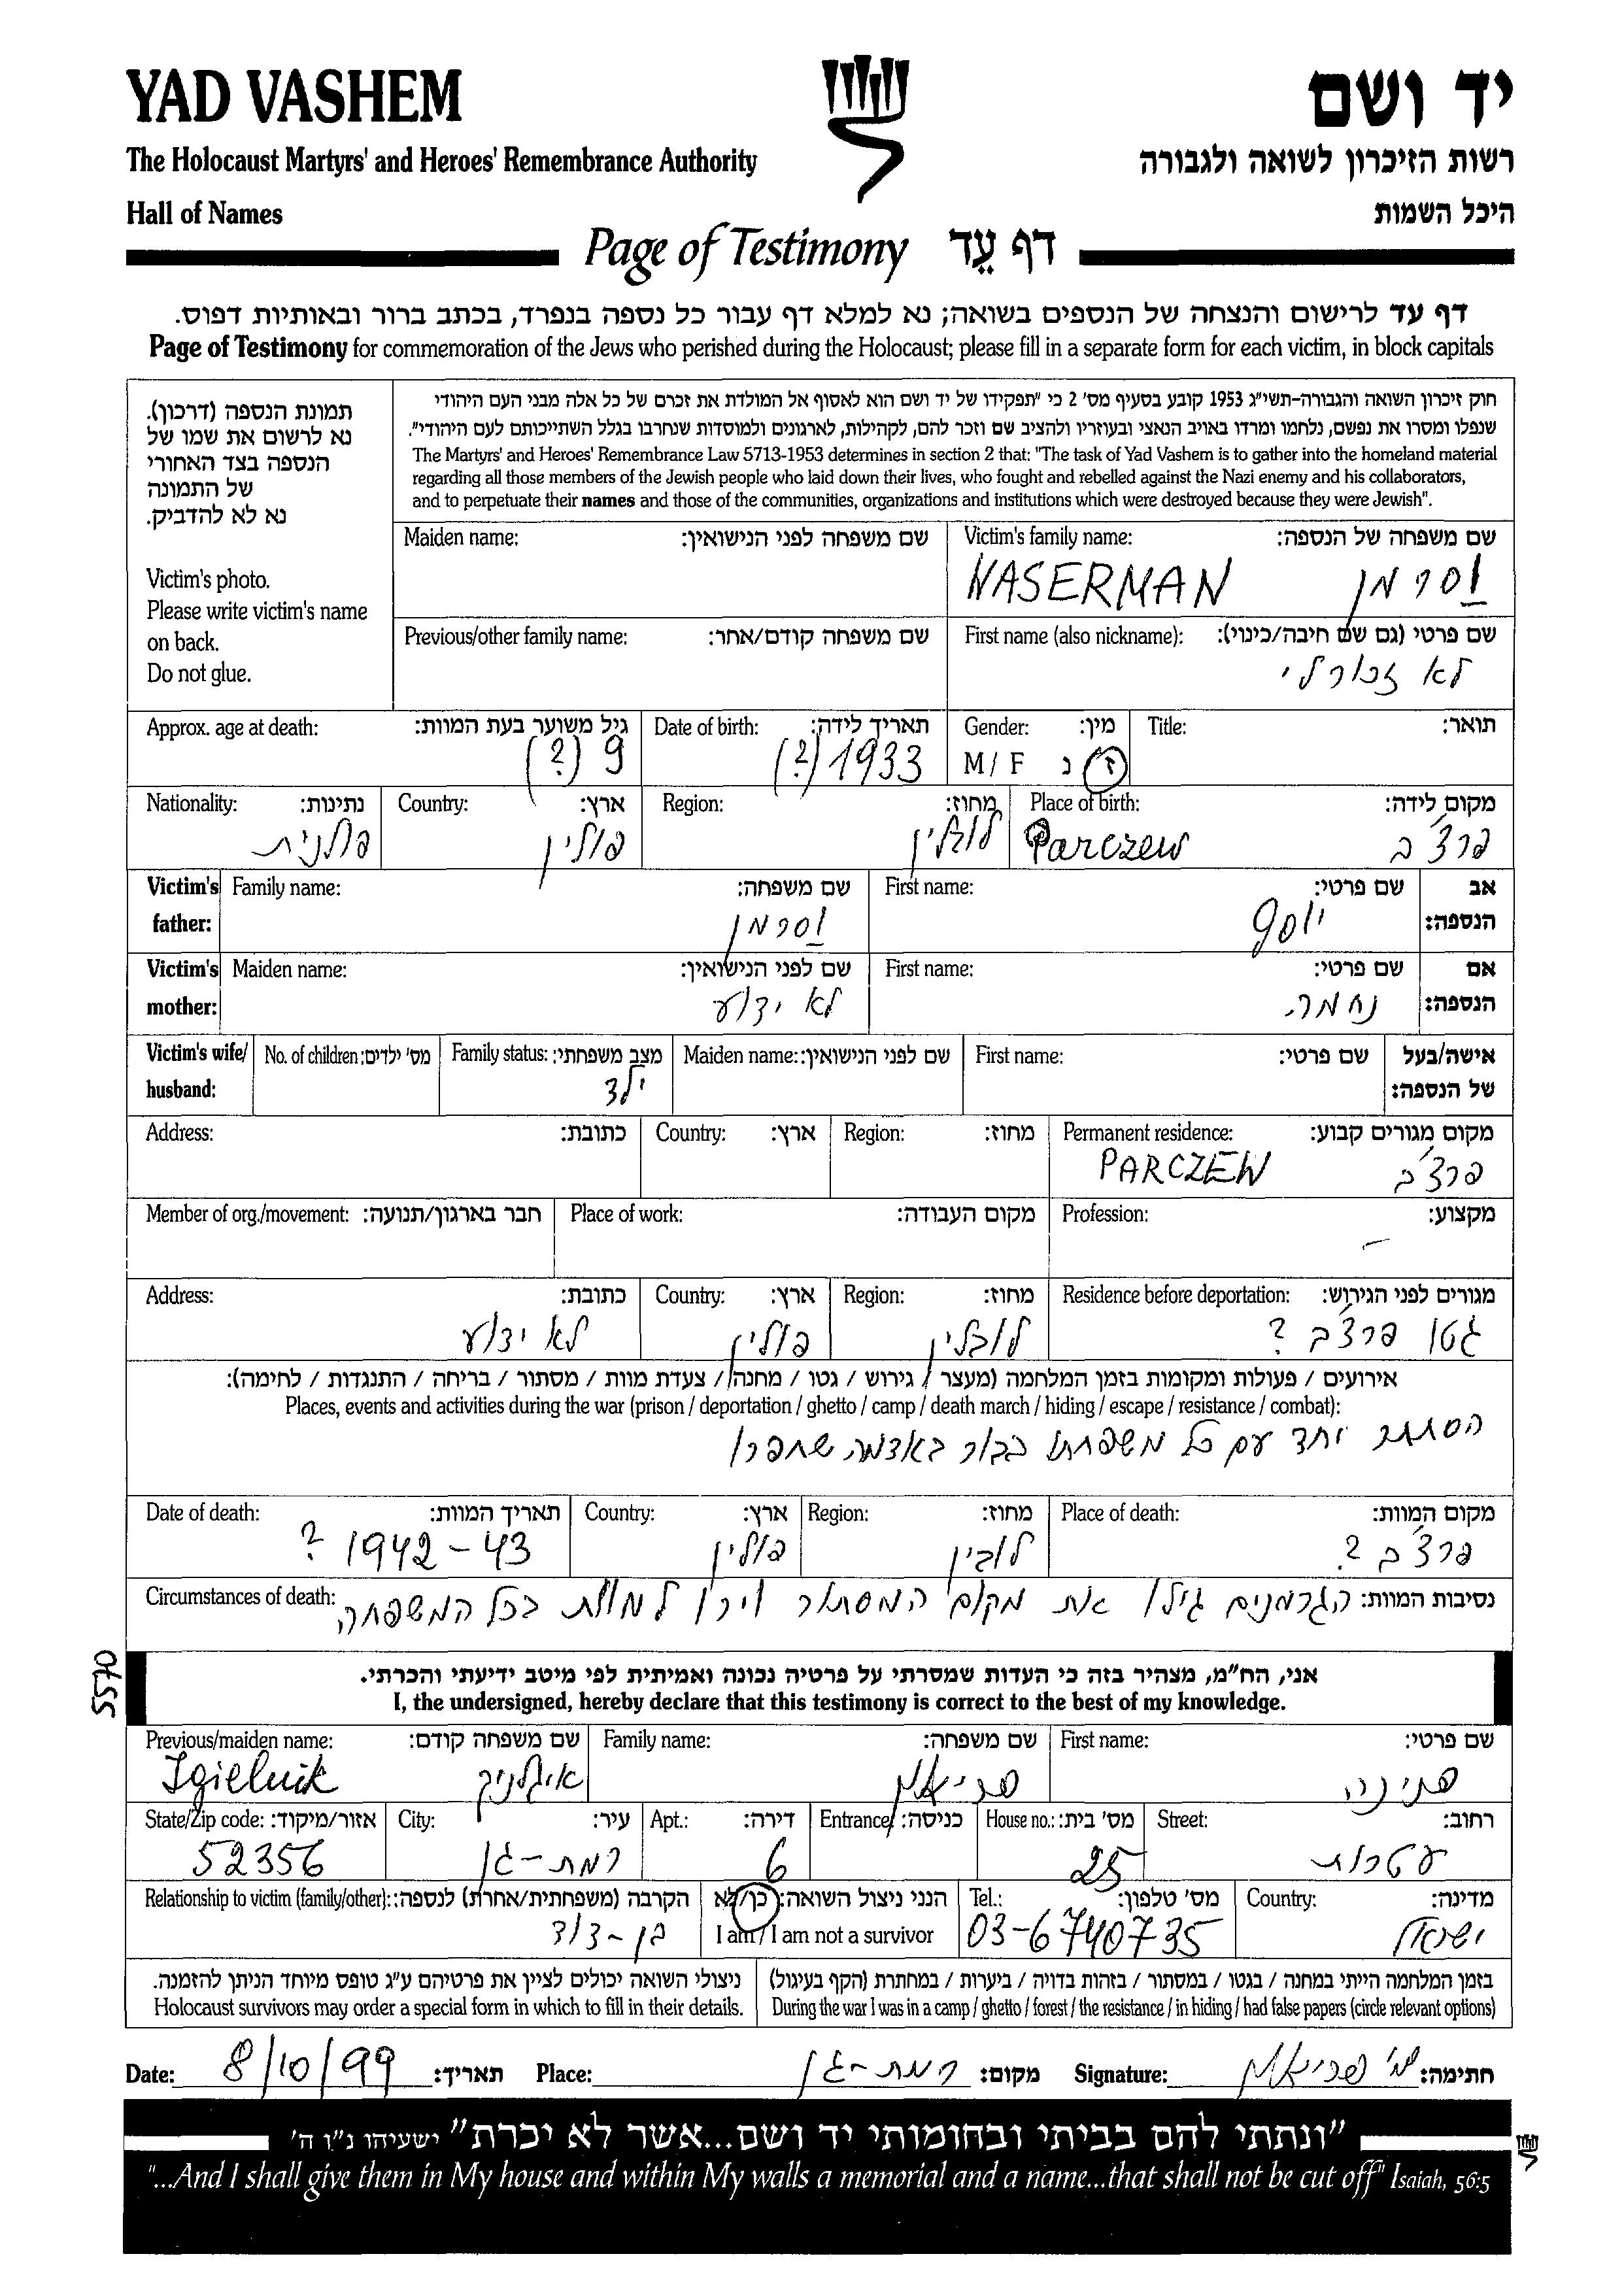 YAD VASHEM
יד ושם
The Holocaust Martyrs' and Heroes' Remembrance Authority
רשות הזיכרון לשואה ולגבורה
Hall of Names
היכל השמות
Page of Testimony דף עֵד
דף עד לרישום והנצחה של הנספים בשואה; נא למלא דף עבור כל נספה בנפרד, בכתב ברור ובאותיות דפוס.
Page of Testimony for commemoration of the Jews who perished during the Holocaust; please fill in a separate form for each victim, in block capitals
תמונת הנספה (דרכון).
נא לרשום את שמו של
הנספה בצד האחורי
של התמונה
נא לא להדביק.
Victim's photo.
Please write victim's name
on back.
Do not glue.
חוק זיכרון השואה והגבורה-תשי"ג 1953 קובע בסעיף מס' 2 כי "תפקידו של יד ושם הוא לאסוף אל המולדת את זכרם של כל אלה מבני העם היהודי
שנפלו ומסרו את נפשם, נלחמו ומרדו באויב הנאצי ובעוזריו ולהציב שם וזכר להם, לקהילות, לארגונים ולמוסדות שנחרבו בגלל השתייכותם לעם היהודי".
The Martyrs' and Heroes' Remembrance Law 5713-1953 determines in section 2 that: "The task of Yad Vashem is to gather into the homeland material
regarding all those members of the Jewish people who laid down their lives, who fought and rebelled against the Nazi enemy and his collaborators,
and to perpetuate their names and those of the communities, organizations and institutions which were destroyed because they were Jewish".
Maiden name: שם משפחה לפני הנישואין: Victim's family name: שם משפחה של הנספה:
WASERMAN וסרמן
Previous/other family name: שם משפחה קודם/אחר: First name (also nickname): שם פרטי (גם שם חיבה/כינוי):
לא זכור לי
Approx. age at death: גיל משוער בעת המוות: Date of birth: תאריך לידה: Gender: מין: Title: תואר:
9 (?) 1933 (?) M / F ז נ
Nationality: נתינות: Country: ארץ: Region: מחוז: Place of birth: מקום לידה:
פולנית פולין לובלין Parczew פרצ'ב
Victim's father: Family name: שם משפחה: First name: שם פרטי: אב הנספה:
וסרמן יוסף
Victim's mother: Maiden name: שם לפני הנישואין: First name: שם פרטי: אם הנספה:
לא ידוע נחמה
Victim's wife/husband: No. of children: מס' ילדים: Family status: מצב משפחתי: Maiden name: שם לפני הנישואין: First name: שם פרטי: אישה/בעל של הנספה:
ילד
Address: כתובת: Country: ארץ: Region: מחוז: Permanent residence: מקום מגורים קבוע:
PARCZEW פרצ'ב
Member of org./movement: חבר בארגון/תנועה: Place of work: מקום העבודה: Profession: מקצוע:
–
Address: כתובת: Country: ארץ: Region: מחוז: Residence before deportation: מגורים לפני הגירוש:
לא ידוע פולין לובלין גטו פרצ'ב ?
אירועים / פעולות ומקומות בזמן המלחמה (מעצר / גירוש / גטו / מחנה / צעדת מוות / מסתור / בריחה / התנגדות / לחימה):
Places, events and activities during the war (prison / deportation / ghetto / camp / death march / hiding / escape / resistance / combat):
הסתתר יחד עם כל משפחתו בבור באדמה שחפרו
Date of death: תאריך המוות: Country: ארץ: Region: מחוז: Place of death: מקום המוות:
1942 - 43 ? פולין לובלין פרצ'ב ?
Circumstances of death: נסיבות המוות: הגרמנים גילו את מקום המסתור וירו למוות בכל המשפחה
5570
אני, הח"מ, מצהיר בזה כי העדות שמסרתי על פרטיה נכונה ואמיתית לפי מיטב ידיעתי והכרתי.
I, the undersigned, hereby declare that this testimony is correct to the best of my knowledge.
Previous/maiden name: שם משפחה קודם: Family name: שם משפחה: First name: שם פרטי:
Igielnik איגלניק פריאל פנינה
State/Zip code: אזור/מיקוד: City: עיר: Apt.: דירה: Entrance: כניסה: House no.: מס' בית: Street: רחוב:
52356 רמת-גן 6 25 עטרות
Relationship to victim (family/other): הקרבה (משפחתית/אחרת) לנספה: הנני ניצול השואה: כן/לא Tel.: מס' טלפון: Country: מדינה:
בן-דוד I am / I am not a survivor 03-6740735 ישראל
ניצולי השואה יכולים לציין את פרטיהם ע"ג טופס מיוחד הניתן להזמנה. בזמן המלחמה הייתי במחנה / בגטו / במסתור / בזהות בדויה / ביערות / במחתרת (הקף בעיגול)
Holocaust survivors may order a special form in which to fill in their details. During the war I was in a camp / ghetto / forest / the resistance / in hiding / had false papers (circle relevant options)
Date: 8/10/99 תאריך: Place: רמת-גן מקום: Signature: חתימה:
"ונתתי להם בביתי ובחומותי יד ושם...אשר לא יכרת" ישעיהו נ"ו ה'
"...And I shall give them in My house and within My walls a memorial and a name...that shall not be cut off" Isaiah, 56:5